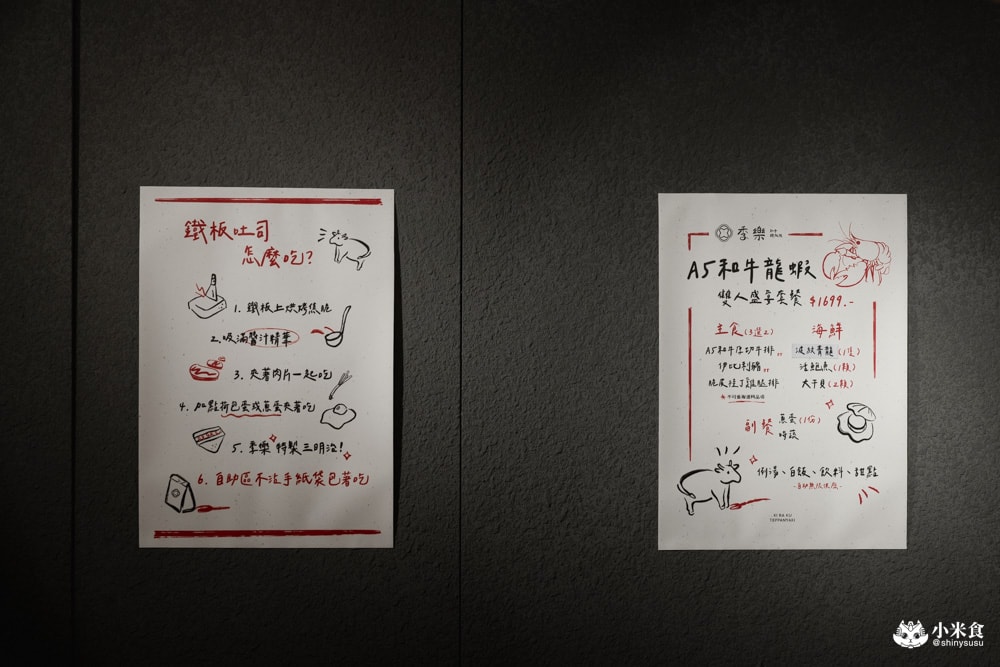 鐵板吐司
怎麼吃?
1. 鐵板上烘烤焦脆
2. 吸滿醬汁精華
3. 夾著肉片一起吃
4. 加點荷包蛋或蔥蛋夾著吃
5. 季樂特製三明治!
6. 自助區不沾手紙袋包著吃
季樂
A5和牛龍蝦
雙人盛宴套餐 $1699.-
主食(3選2)
A5和牛原切牛排
伊比利豬
脆皮去丁雞腿排
海鮮
波放青龍(1隻)
活鮑魚(1顆)
大干貝(2顆)
副餐
蔥蛋(1份)
時蔬
例湯、白飯、飲料、甜點
-自助無限供應-
KI RA KU
TEPPANYAKI
小米食
@shinysusu